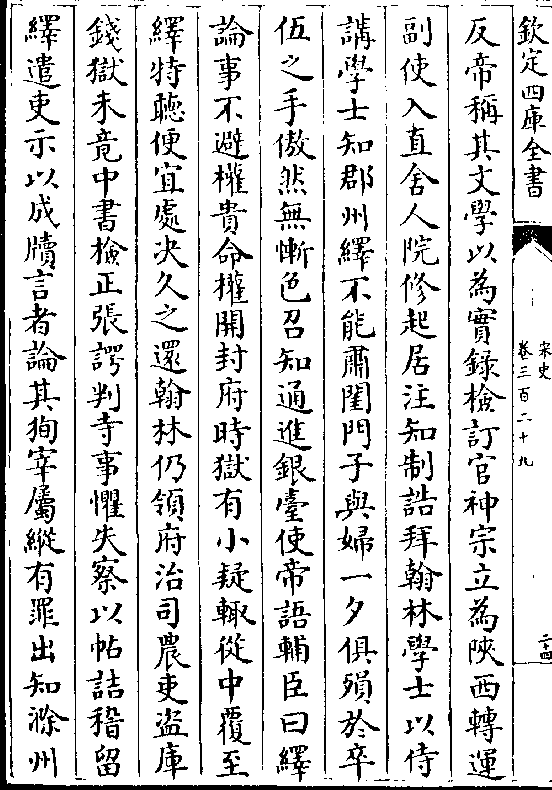 欽定四庫全書
宋史
卷三百二十九
二十四
反帝稱其文學以為實錄檢訂官神宗立為陝西轉運
副使入直舍人院修起居注知制誥拜翰林學士以侍
講學士知鄆州繹不能肅閨門子與婦一夕俱殞於卒
伍之手傲然無慚色召知通進銀臺使帝語輔臣曰繹
論事不避權貴命權開封府時獄有小疑輒從中覆至
繹特聽便宜處决久之還翰林仍領府治司農吏盜庫
錢獄未竟中書檢正張諤判寺事懼失察以帖詰稽留
繹遣吏示以成牘言者論其徇宰屬縱有罪出知滁州